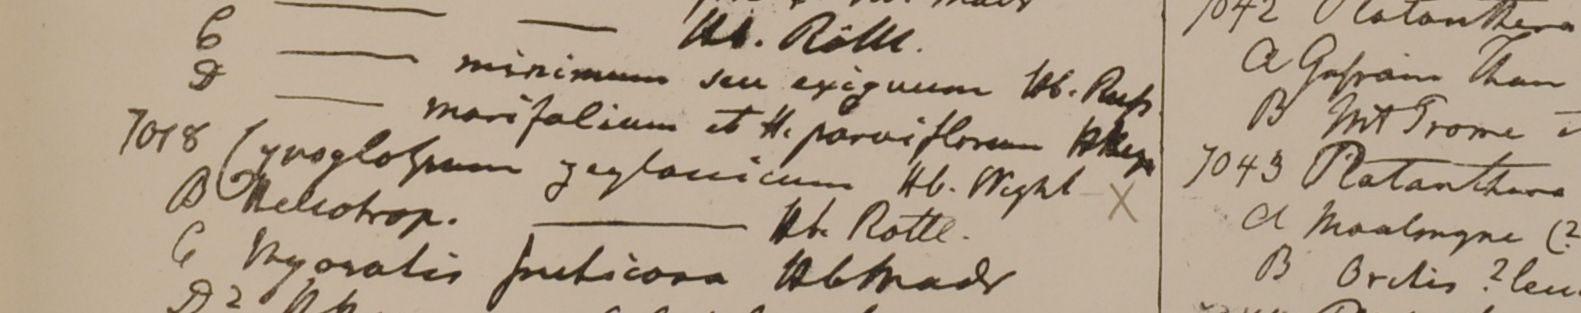 C ——— ——— Hb. Rottl.
D ——— minimum seu exiguum Hb. Russ.
——— marifolium et H. parviflorum
7018 Cynoglossum zeylanicum Hb. Wight X
B Heliotrop. ——— Hb. Rottl.
C Myosotis fruticosa Hb Madr
D 2
7042 Platanthera
A Than
B Mt Prome
7043 Platanthera
A Moalmyne (?
B Orchis ? leu